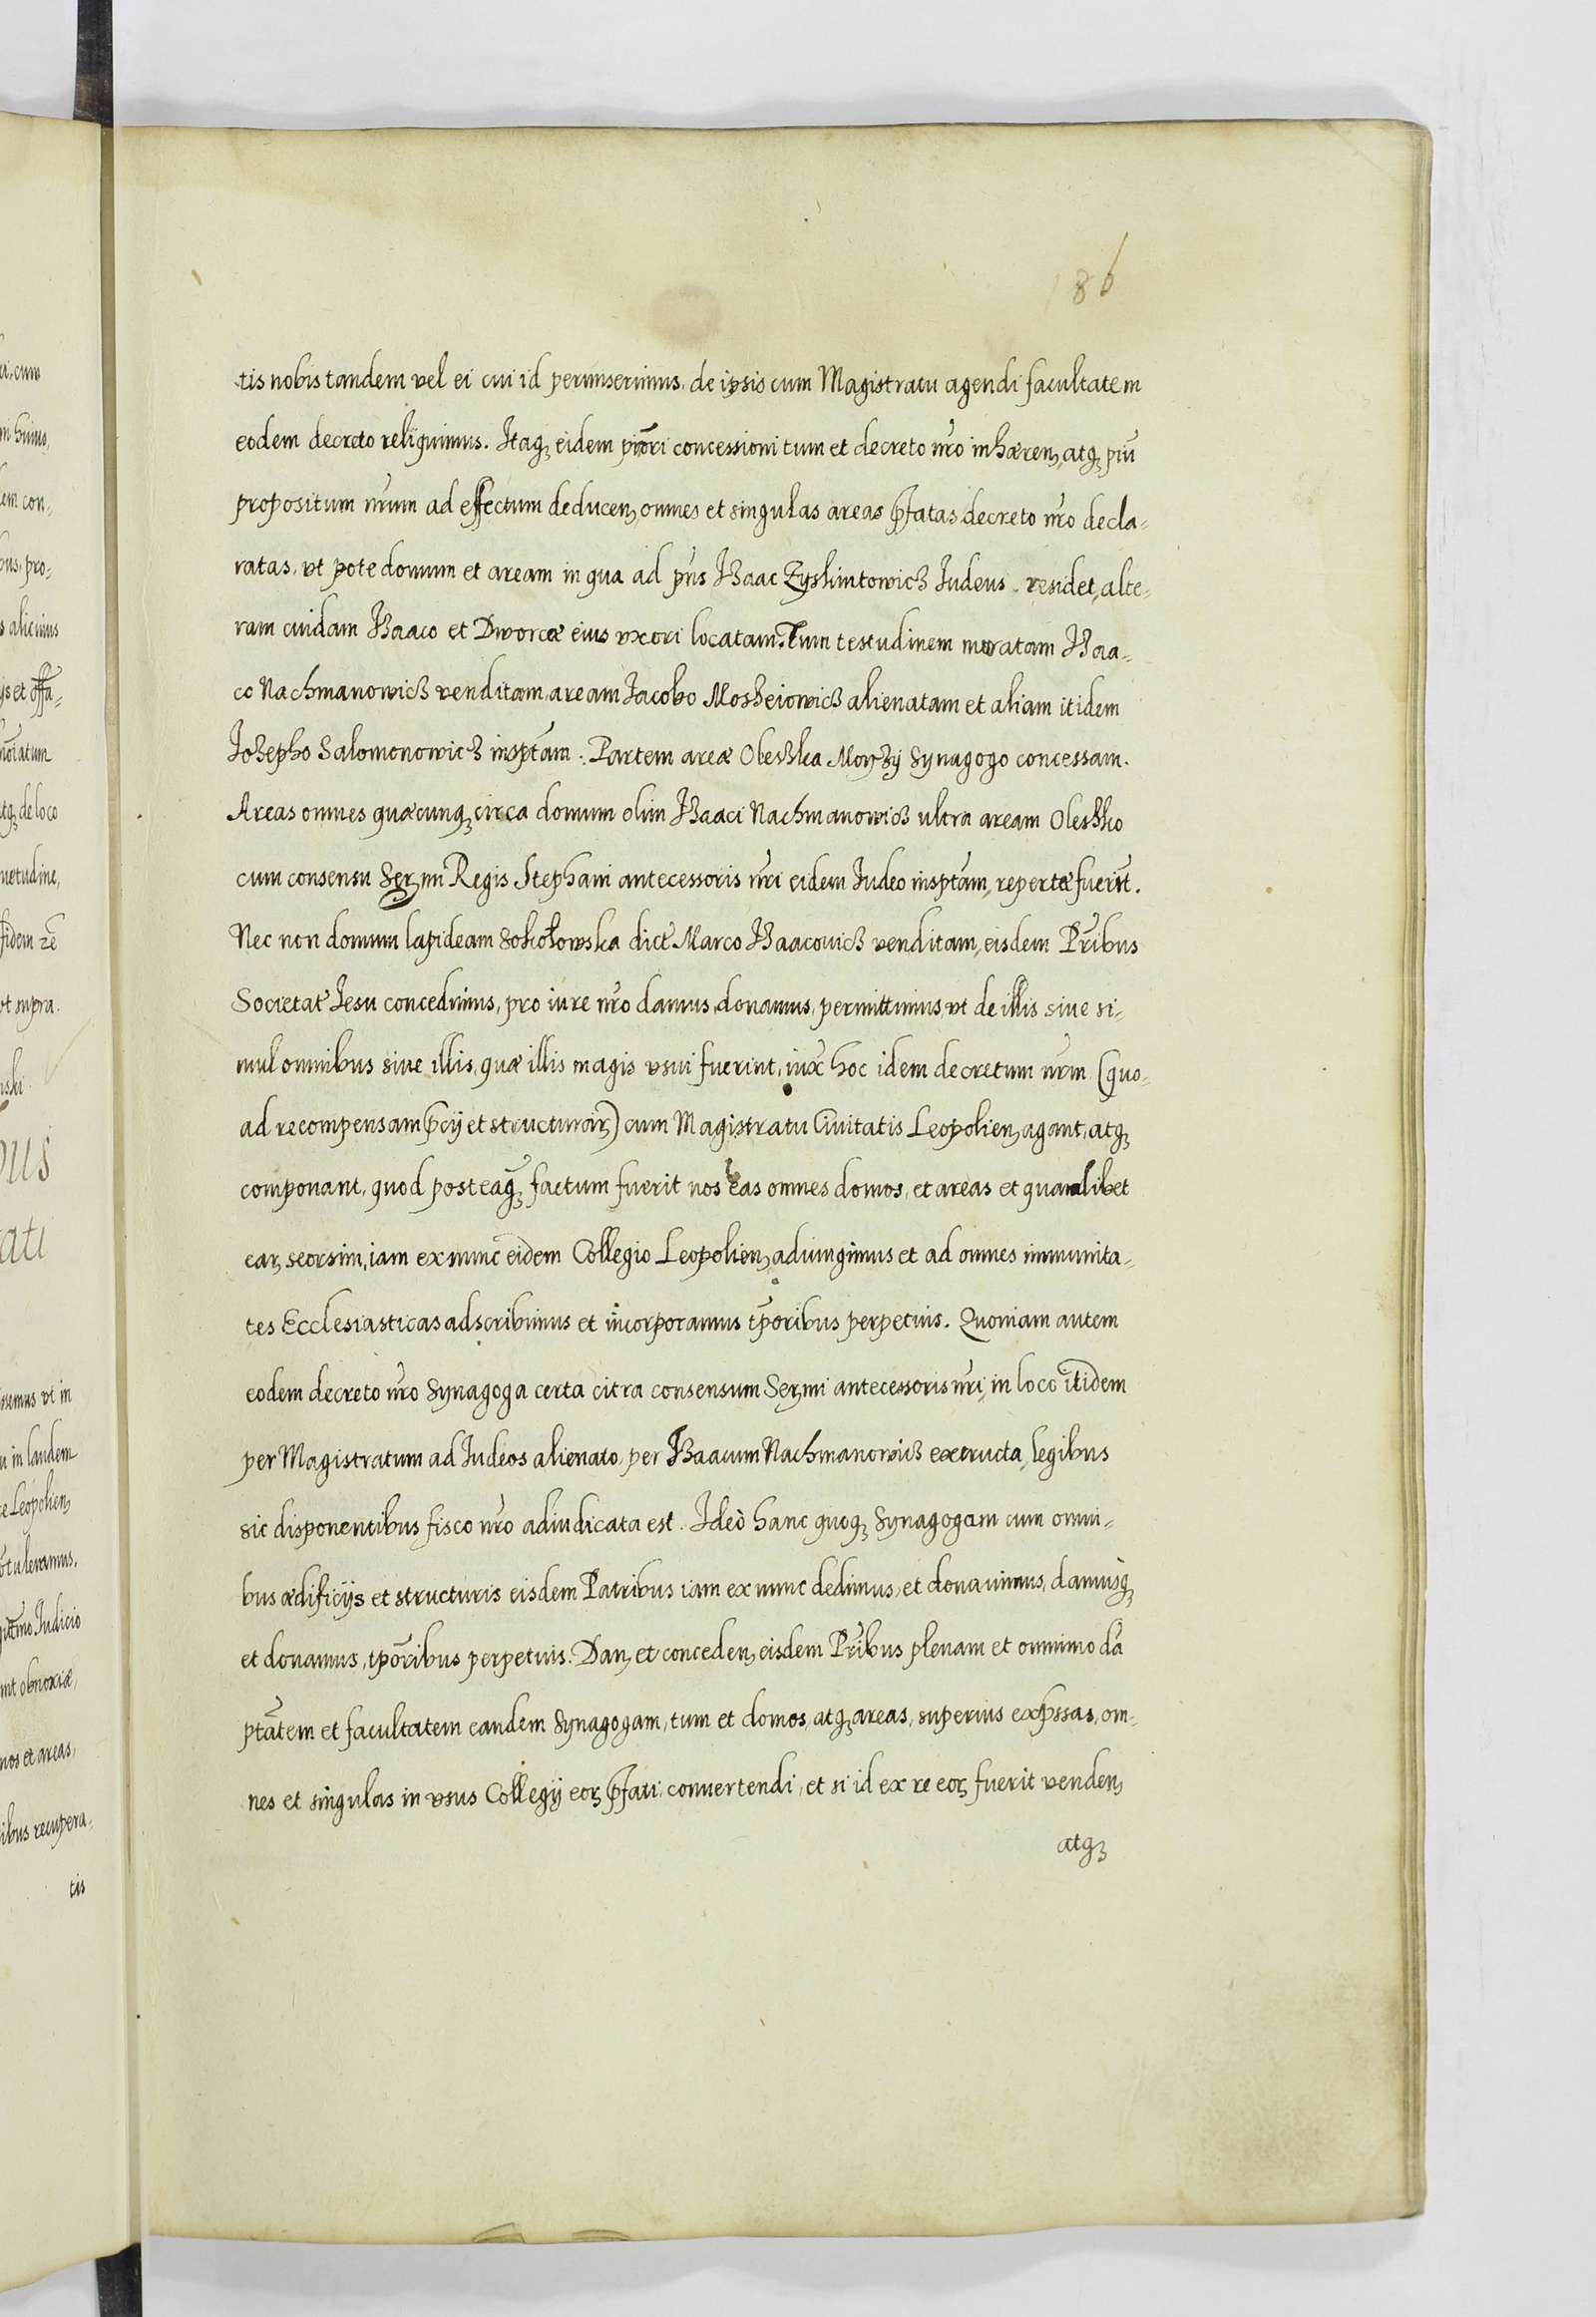 186
tis nobis tandem vel ei cui id permiserimus, de ipsis cum Magistratu agendi facultatem
eodem decreto reliquimus. Itaq₃ eidem piōri concessioni tum et decreto nr̃o inhæren₃, atq₃ piũ
propositum nr̃um ad effectum deducen₃ omnes et singulas areas p̃fatas decreto nr̃o decla-
ratas, vt pote domum et aream in qua ad pñs Isaac Zyskintowicz Iudeus residet, alte-
ram cuidam Isaaco et Dworcæ eius vxori locatam. Tum testudinem muratam Isaa-
co Nachmanowicz venditam, aream Iacobo Moszeiowicz alienatam et aliam itidem
Iosepho Salomonowicz insptam. Partem areæ Oleszka Moyzy Synagogo concessam.
Areas omnes quæcunq₃ circa domum olim Isaaci Nachmanowicz ultra aream Oleszko
cum consensu Ser₃mi Regis Stephani antecessoris nr̃i eidem Iudeo insptam, repertæ fuerĩt.
Nec non domum lapideam Sokołowska dict̃ Marco Isaacouicz venditam, eisdem Pr̃ibus
Societat̃ Iesu concedimus, pro iure nr̃o damus, donamus, permittimus, vt de illis siue si-
mul omnibus siue illis, quæ illis magis vsui fuerint, iux̃ hoc idem decretum nr̃m (quo-
ad recompensam p̃cij et structurar₃) cum Magistratu Ciuitatis Leopolien₃ agant, atq₃
componant, quod posteaq̃₃ factum fuerit nos eas omnes domos, et areas et quamlibet
ear₃ seorsim, iam ex nunc eidem Collegio Leopolien₃ adiungimus et ad omnes immunita-
tes Ecclesiasticas adscribimus et incorporamus tp̃oribus perpetuis. Quoniam autem
eodem decreto nr̃o Synagoga certa citra consensum Ser₃mi antecessoris nr̃i, in loco itidem
per Magistratum ad Iudeos alienato, per Isaacum Nachmanowicz extructa, legibus
sic disponentibus fisco nr̃o adiudicata est. Ideò hanc quoq₃ Synagogam cum omni-
bus ædificijs et structuris eisdem Patribus iam ex nunc dedimus, et donauimus, damusq̀₃
et donamus, tp̃oribus perpetuis. Dan₃ et conceden₃ eisdem Pr̃ibus plenam et omnimodã
ptãtem et facultatem eandem Synagogam, tum et domos, atq₃ areas, superius exp̃ssas, om-
nes et singulas in vsus Collegij eor₃ p̃fati conuertendi, et si id ex re eor₃ fuerit venden₃
atq₃